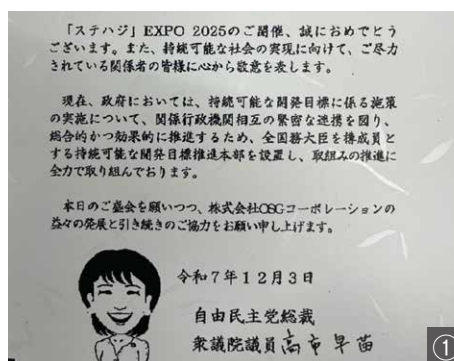 「ステハジ」EXPO 2025のご開催、誠におめでとう
ございます。また、持続可能な社会の実現に向けて、ご尽力
されている関係者の皆様に心から敬意を表します。
現在、政府においては、持続可能な開発目標に係る施策
の実施について、関係行政機関相互の緊密な連携を図り、
総合的かつ効果的に推進するため、全国務大臣を構成員と
する持続可能な開発目標推進本部を設置し、取組みの推進に
全力で取り組んでおります。
本日のご盛会を願いつつ、株式会社OSGコーポレーションの
益々の発展と引き続きのご協力をお願い申し上げます。
令和7年12月3日
自由民主党総裁
衆議院議員 高市早苗
①